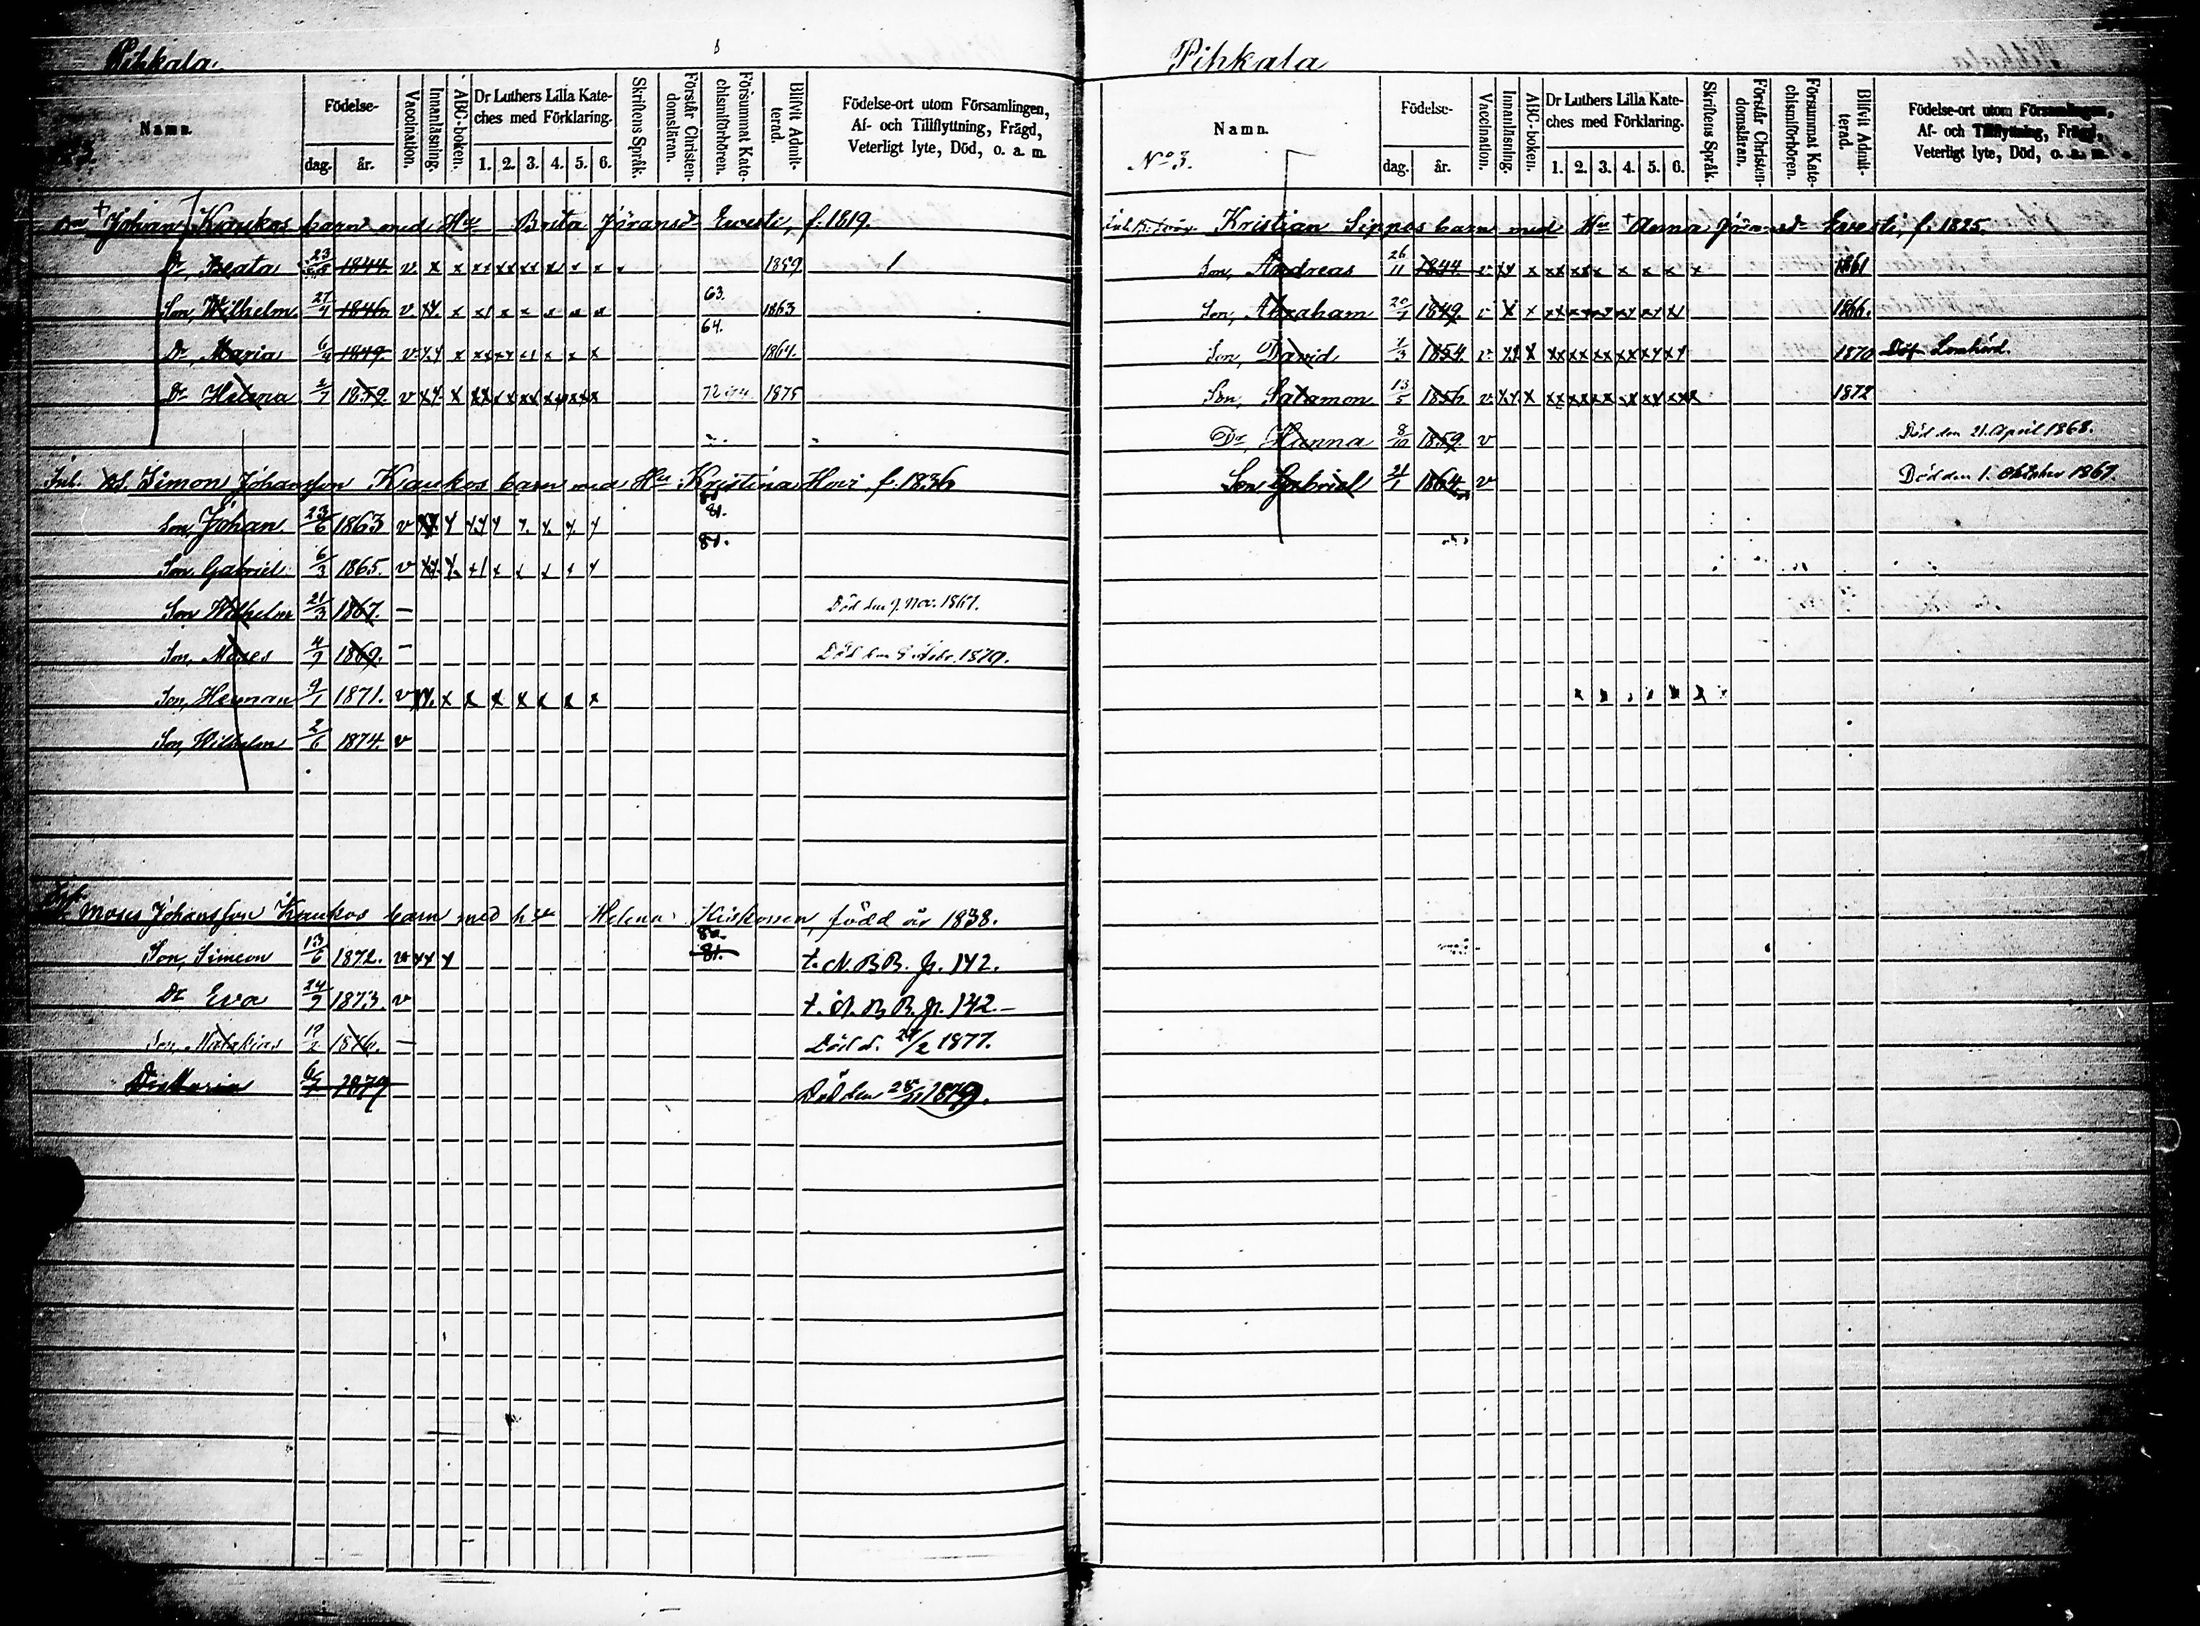 Pihkala.
Namn.
Födelse-
dag. år.
Vaccination.
Innanläsning.
ABC-boken.
Dr Luthers Lilla Kate-
ches med Förklaring.
1. 2. 3. 4. 5. 6.
Skriftens Språk.
Förstår Christen-
domsläran.
Försummat Kate-
chismiförhören.
Blifvit Admit-
terad.
Födelse-ort utom Församlingen,
Af- och Tillflyttning, Frägd,
Veterligt lyte, Död, o. a. m.
Johan Kaukos barn med Hu Brita Jöransdr Evesti, f. 1819.
Dr, Beata 1844 v x x x x x x x x x x 1859
Son, Wilhelm 27/4 1846 v x x x x x x x x 63. 1863
Dr Maria 6/4 1849 v x x x x x x x x 64. 1864
Dr Helena 2/7 1859 v x x x x x x x x x 1875
Inh. Simon Johansson Kaukos barn med Hu Kristina Hovi, f. 1836
Son, Johan 23/6 1863 v x x x x x x x x 81.
Son, Gabriel 6/3 1865. v x x x x x x x x 81.
Son Wilhelm 21/3 1867. — Död den 9. Nov. 1867.
Son, Moses 4/9 1869. — Död den 1870.
Son, Herman 9/1 1871. v x x x x x x x x
Son, Wilhelm 2/6 1874. v
Moses Johansson Kaukos barn med hu Helena Kiiskonen, född år 1838.
Son, Simeon 13/6 1872. v x x x 81. t. N. B B. p. 142.
Dr Eva 24/9 1873. v t. N. B B. p. 142.—
Son, Malakias 19/2 1876. — Död d. 1877.
Dr Maria 6/7 1879 Död den 1879.
Pihkala
Namn.
No 3.
Födelse-
dag. år.
Vaccination.
Innanläsning.
ABC-boken.
Dr Luthers Lilla Kate-
ches med Förklaring.
1. 2. 3. 4. 5. 6.
Skriftens Språk.
Förstår Christen-
domsläran.
Försummat Kate-
chismiförhören.
Blifvit Admit-
terad.
Födelse-ort utom Församlingen,
Af- och Tillflyttning, Frägd,
Veterligt lyte, Död, o. a. m.
Kristian Sippos barn med Hu Anna Jöransdr Evesti, f. 1825.
Son, Andreas 26/11 1844 v x x x x x x x x x 1861
Son, Abraham 20/1 1849 v x x x x x x x x 1866.
Son, David 1/3 1854 v x x x x x x x x 1870 Döf Lomhörd.
Son, Salamon 13/5 1856. v x x x x x x x x x 1872
Dr, Hanna 8/10 1859. v Död den 21. April 1868.
Son Gabriel 21/1 1864 v Död den 1. Oktober 1867.